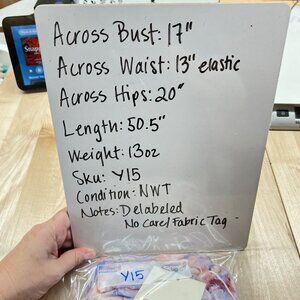 Across Bust: 17"
Across Waist: 13" elastic
Across Hips: 20"
Length: 50.5"
Weight: 13oz
Sku: Y15
Condition: NWT
Notes: Delabeled
No Care/Fabric Tag
Y15